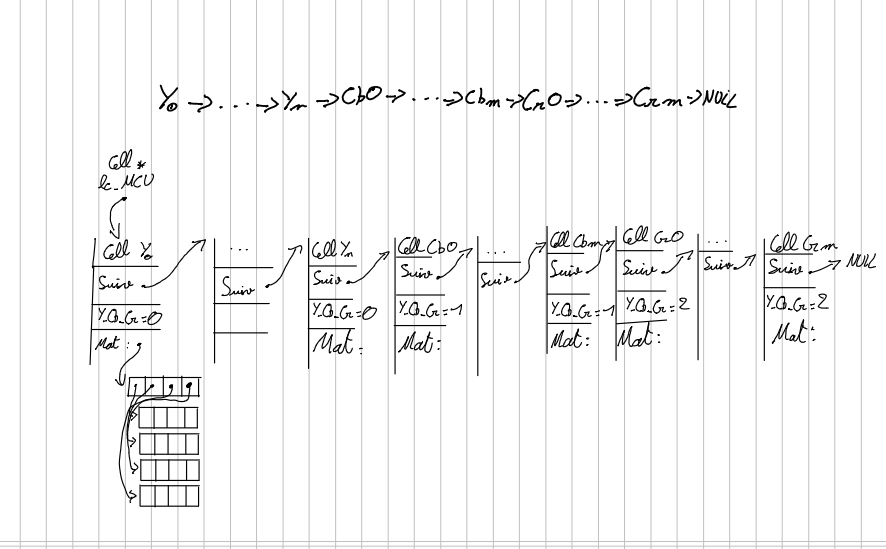 Y0 -> .... -> Yn -> Cb0 -> ... -> Cbm -> Cr0 -> ... -> Crm -> NULL
Cell *
lc_MCU
Cell Y0
Suiv
Y_Cb_Cr=0
Mat :
...
Suiv
Cell Yn
Suiv
Y_Cb_Cr=0
Mat :
Cell Cb0
Suiv
Y_Cb_Cr=1
Mat:
...
Suiv
Cell Cbm
Suiv
Y_Cb_Cr=1
Mat:
Cell Cr0
Suiv
Y_Cb_Cr=2
Mat:
...
Suiv
Cell Crm
Suiv -> NULL
Y_Cb_Cr=2
Mat: